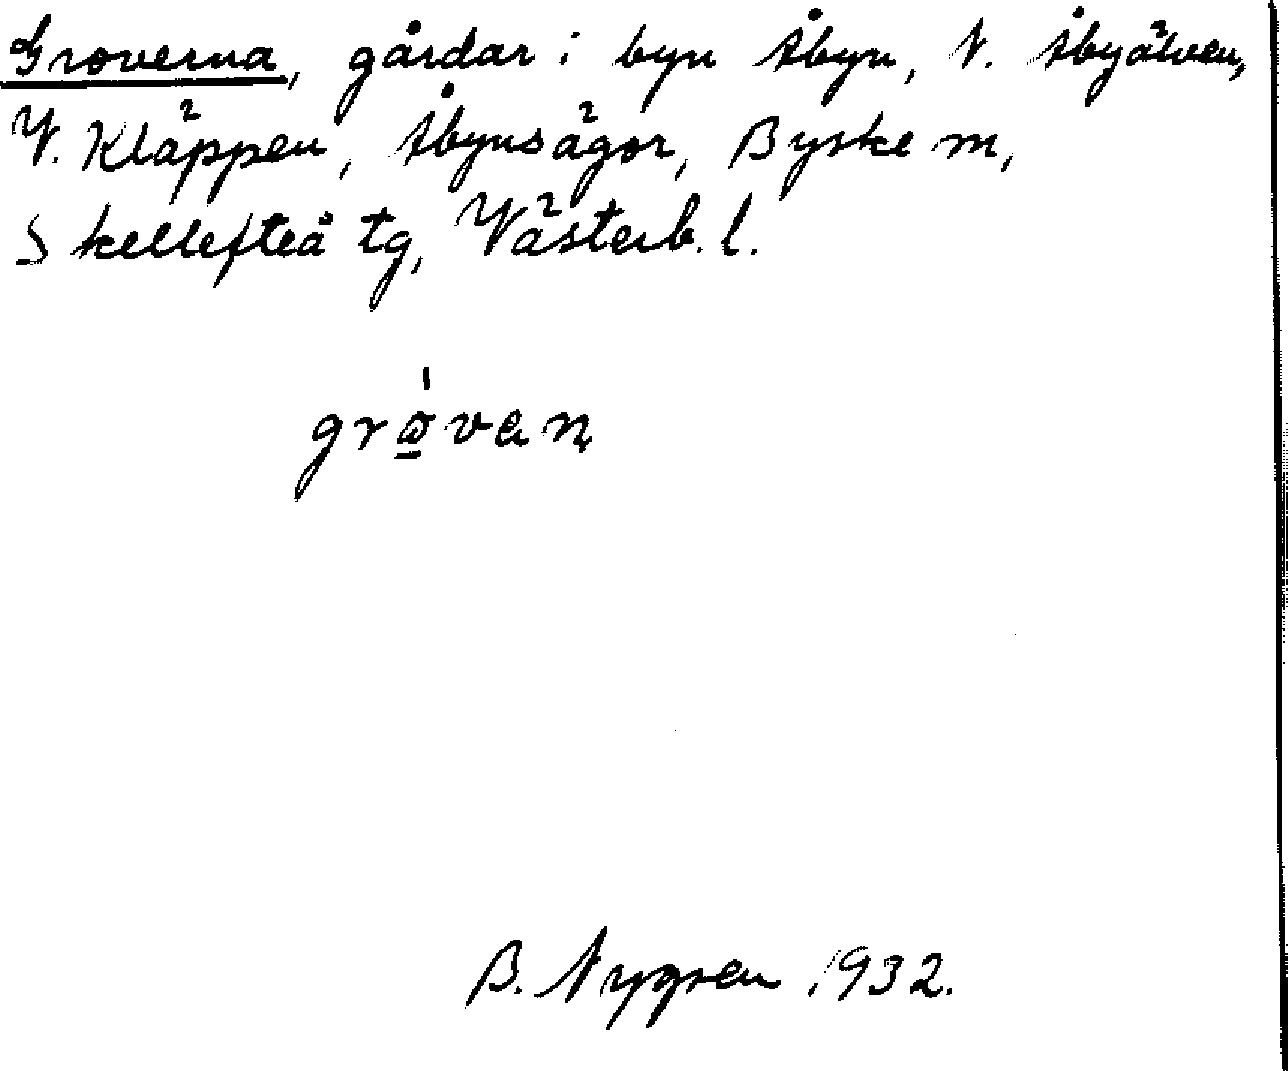 Groverna, gårdar i byn Åbyn, N. Åbyälven,
V. Kläppen, Åbynsägor, Byske sn,
Skellefteå tg, Västerb. l.
B. Nygren 1932.